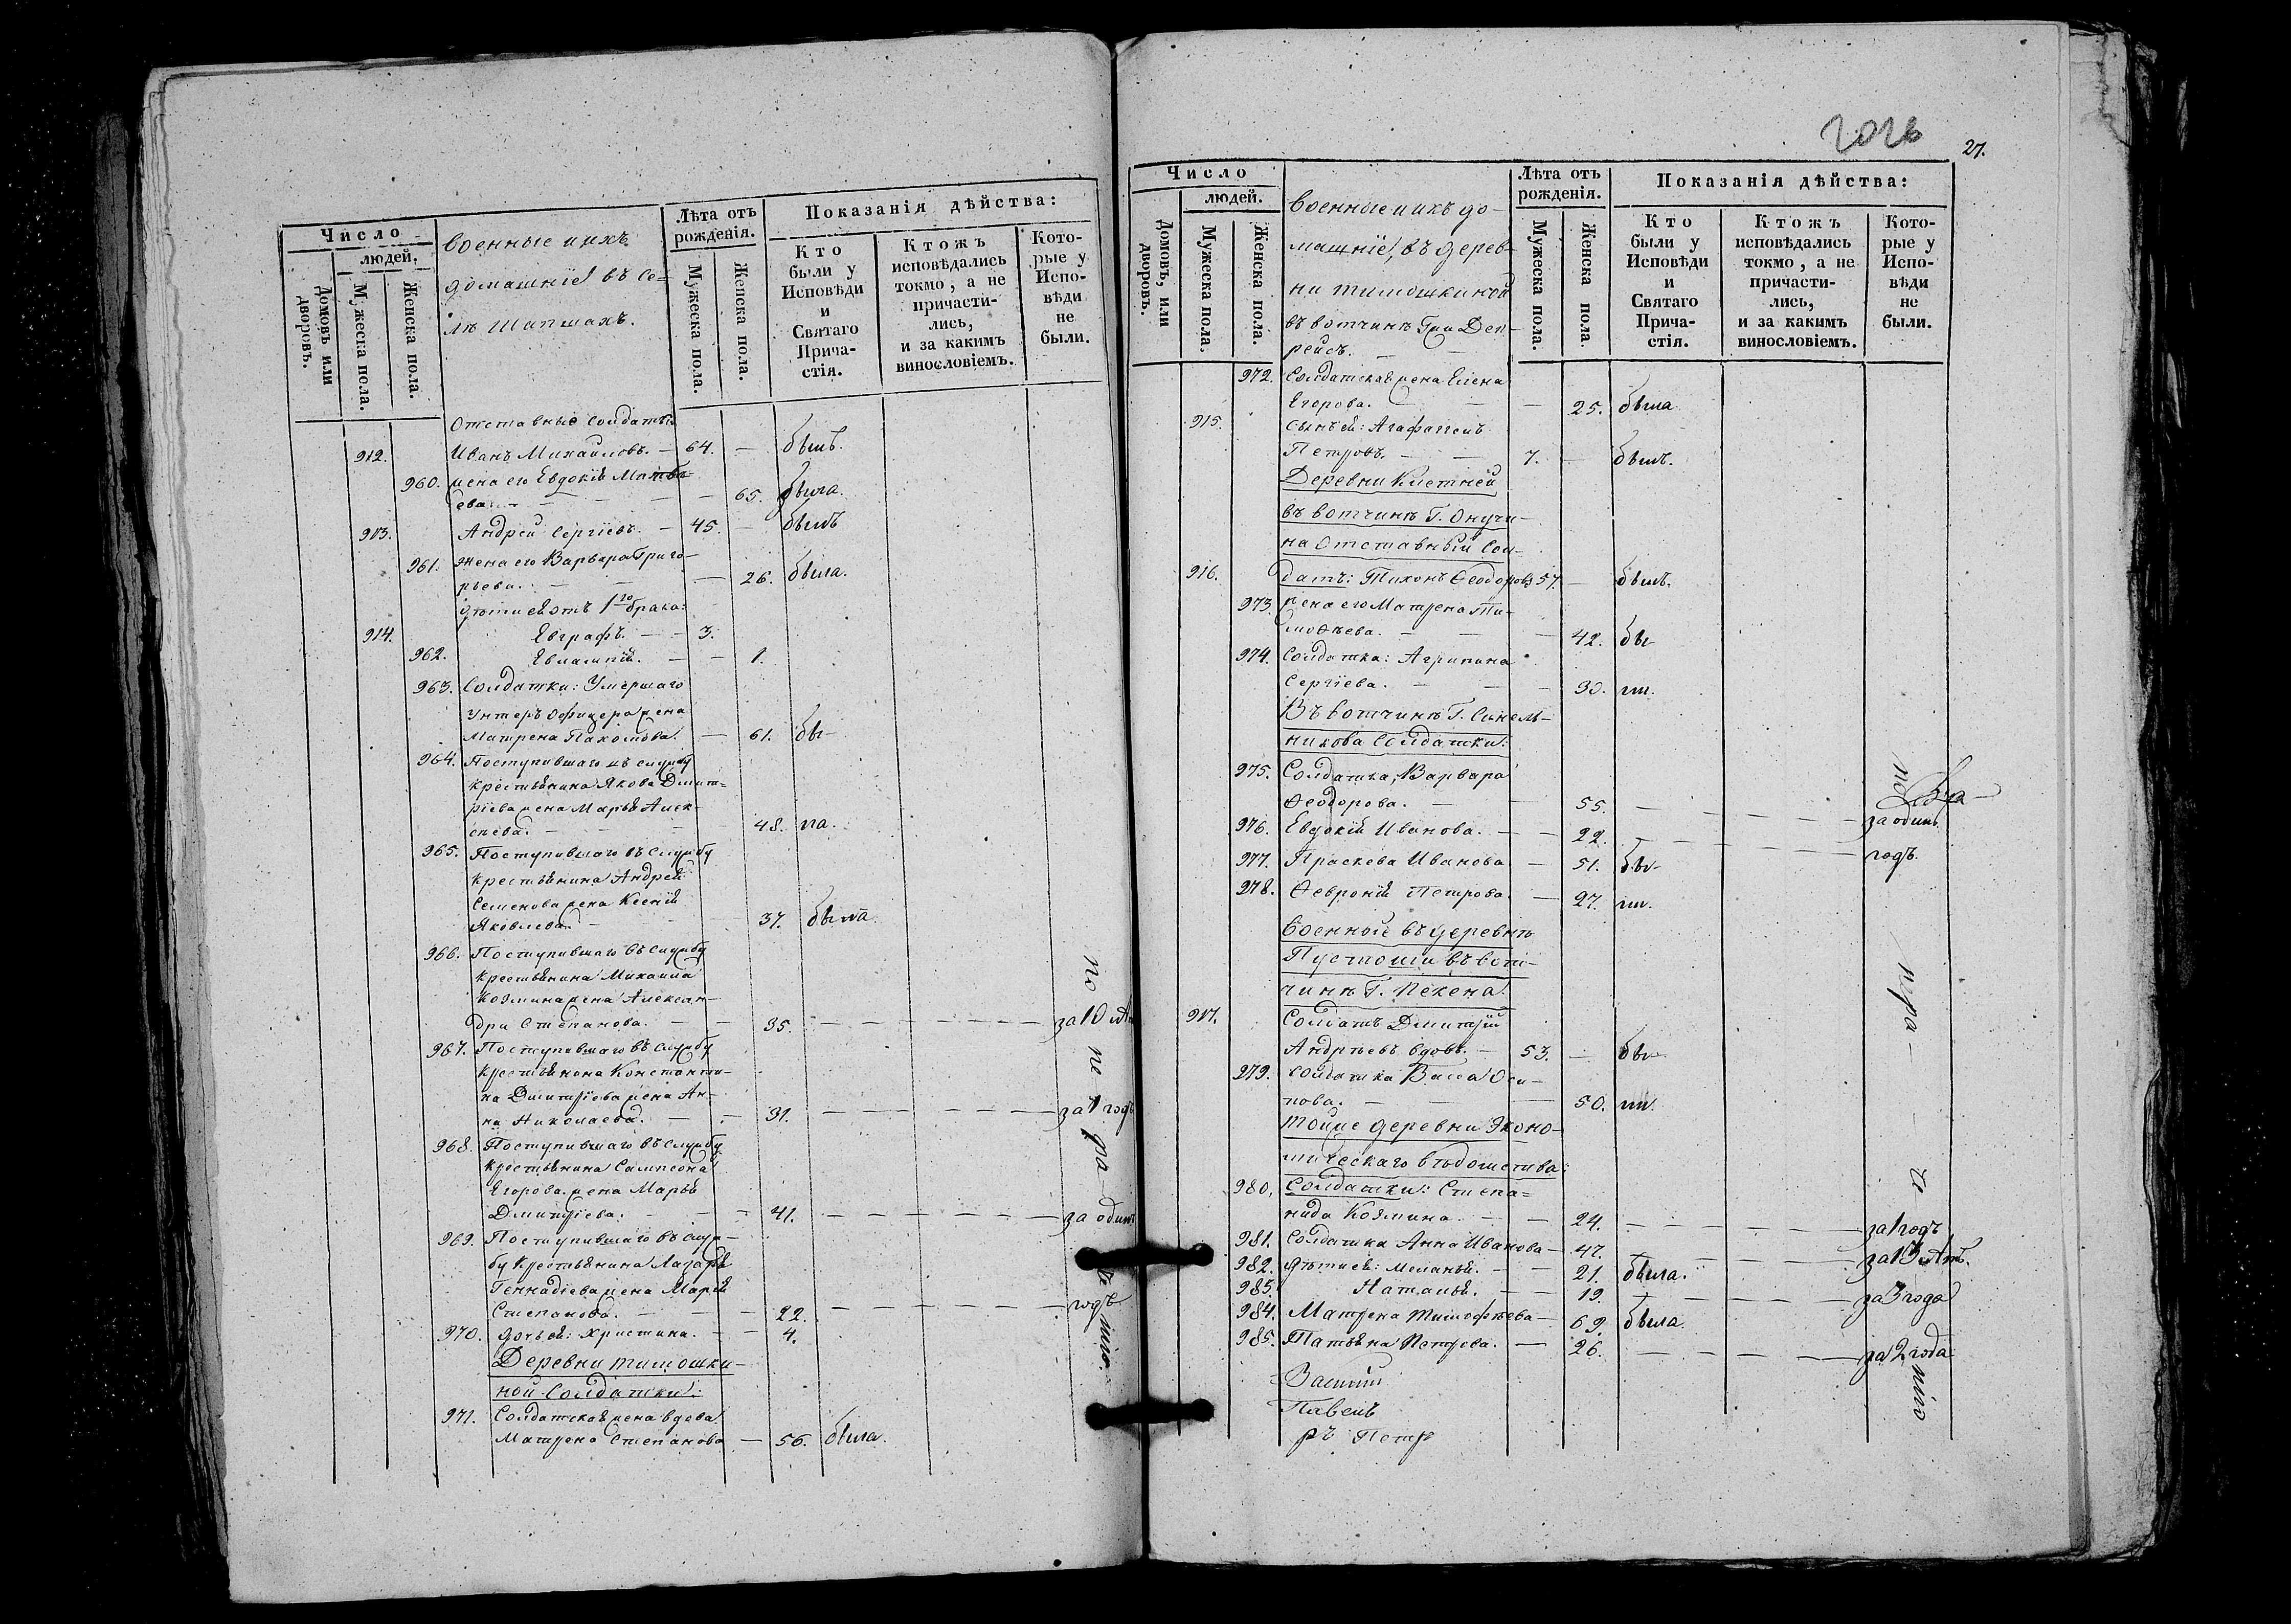 Число
людей.
Домовъ или дворовъ.
Мужеска пола.
Женска пола.
военные и ихъ
домашніе въ се-
лѣ Шапшахъ.
Лѣта отъ рожденія.
Мужеска пола.
Женска пола.
Показанія дѣйства:
Кто были у Исповѣди и Святаго Прича-стія.
Ктожъ исповѣдались токмо, а не причасти-лись, и за какимъ винословіемъ.
Кото-рые у Испо-вѣди не были.
Отставные солдаты
912. Иванъ Михайловъ. — 64. — былъ.
960. жена его Евдокія Матвѣ-
ева. — 65. была.
913. Андрей Сергіевъ. — 45. — былъ
961. Жена его Варвара Григо-
рьева. — 26. была.
дѣти ея отъ 1го брака:
914. Евграфъ. — 3.
962. Евлампія. — 1.
963. Солдатки: Умершаго
Унтеръ офицера жена
Матрена Пахомова. — 61. бы-
964. Поступившаго въ службу
крестьянина Якова Дмит-
ріева жена Марья Алек-
сѣева. — 48. ла.
965. Поступившаго въ службу
крестьянина Андрея
Семенова жена Ксенія
Яковлева. — 37. была.
966. Поступившаго въ службу
крестьянина Михаила
Козмина жена Алексан-
дра Степанова. — 35. — за 10 лѣт
967. Поступившаго въ службу
крестьянина Константи-
на Дмитріева жена Ан-
на Николаева. — 31. — за 1 годъ
968. Поступившаго въ службу
крестьянина Сампсона
Егорова жена Марья
Дмитріева. — 41. — за один
969. Поступившаго въ служ-
бу крестьянина Лазаря
Геннадіева жена Марія
Степанова. — 22. — годъ
970. дочь ея: Христина. — 4.
Деревни Тимошки-
ной Солдатки:
971. Солдатская жена вдова
Матрена Степанова — 56. была.
27.
Число
людей.
Домовъ, или дворовъ.
Мужеска пола.
Женска пола.
Военные и ихъ до-
машніе, въ дерев-
ни Тимошкиной
въ вотчинѣ Г-жи Ден-
рейсъ.
Лѣта отъ рожденія.
Мужеска пола.
Женска пола.
Показанія дѣйства:
Кто были у Исповѣди и Святаго Прича-стія.
Ктожъ исповѣдались токмо, а не причасти-лись, и за какимъ винословіемъ.
Кото-рые у Испо-вѣди не были.
972. Солдатская жена Елена
Егорова. — 25. была
915. сынъ ея: Агафангелъ
Петровъ. — 7. — былъ.
Деревни Клетней
въ вотчинѣ Г. Онучи-
на Отставный Сол-
916. датъ: Тихонъ Ѳеодоровъ 57. — былъ.
973. жена его Матрена Ти-
моѳѣева. — 42. бы-
974. Солдатка: Агрипина
Сергіева. — 30. ли.
Въ вотчинѣ Г. Синель-
никова Солдатки:
975. Солдатка, Варвара
Ѳеодорова. — 55. —
976. Евдокія Иванова. — 22. — за одинъ
977. Праскева Иванова — 51. бы- годъ.
978. Ѳевронія Петрова. — 27. ли.
Военной въ деревнѣ
Пустоши въ вот-
чинѣ Г. Пекена.
917. Солдатъ Дмитрій
Андрѣевъ вдовъ. — 53. — бы-
979. солдатка Васса Оси-
пова. — 50. ли.
Тойже деревни Эконо-
мическаго вѣдомства:
980. Солдатки: Степа-
нида Козмина. — 24. — за 1 годъ
981. Солдатка Анна Иванова — 47. — за 13 лѣтъ.
982. дѣти ея: Меланья. — 21. была.
983. Наталья. — 19. — за 3 года
984. Матрена Тимоѳѣева — 69. была.
985. Татьяна Петрова. — 26. — за 2 года
Павелъ
ръ Петръ